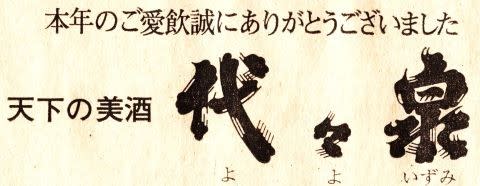 本年のご愛飲誠にありがとうございました
天下の美酒 代々泉
よ よ いずみ